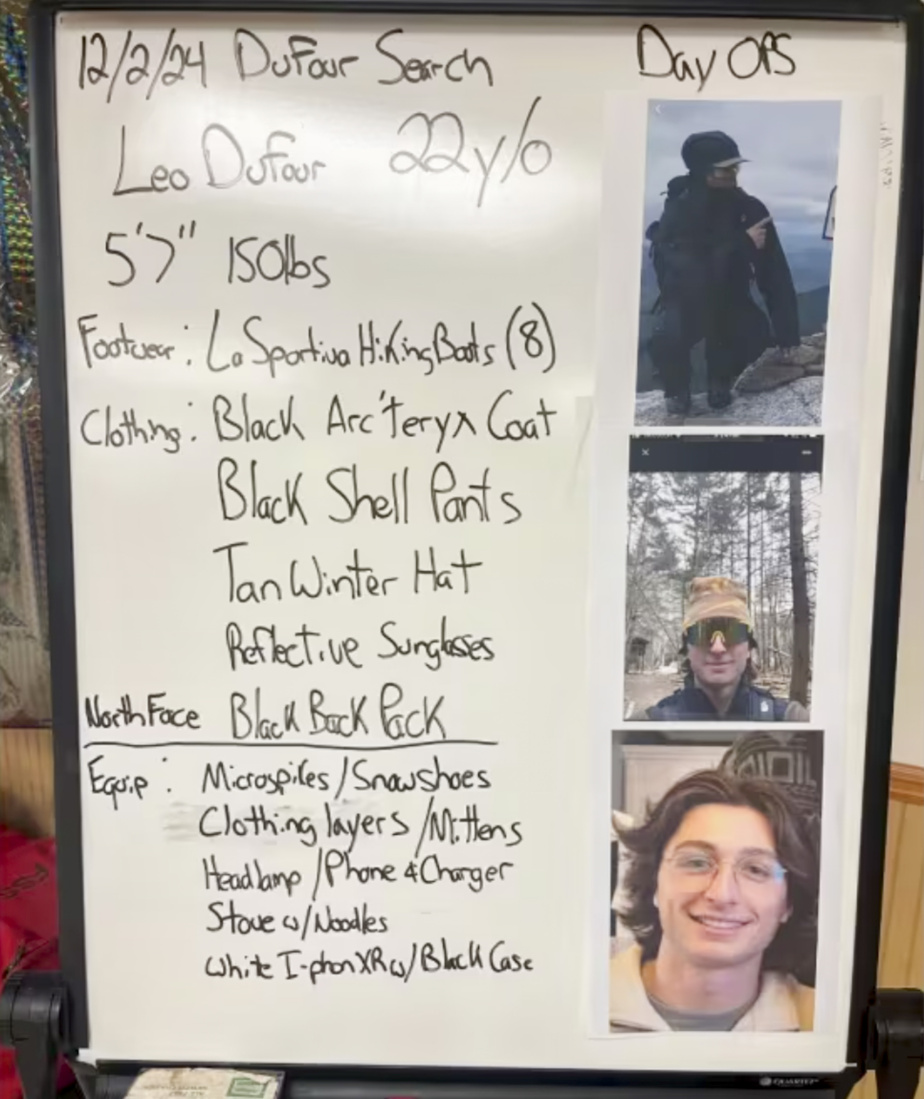 12/2/24 DuFour Search
Day OPS
Leo DuFour 22y/o
5'7" 150lbs
Footwear: La Sportiva Hiking Boots (8)
Clothing: Black Arc'teryx Coat
Black Shell Pants
Tan Winter Hat
Reflective Sunglasses
North Face Black Back Pack
Equip: Microspikes/Snowshoes
Clothing layers/Mittens
Headlamp/Phone & Charger
Stove w/Noodles
White I-phon XR w/Black Case
QUARTET